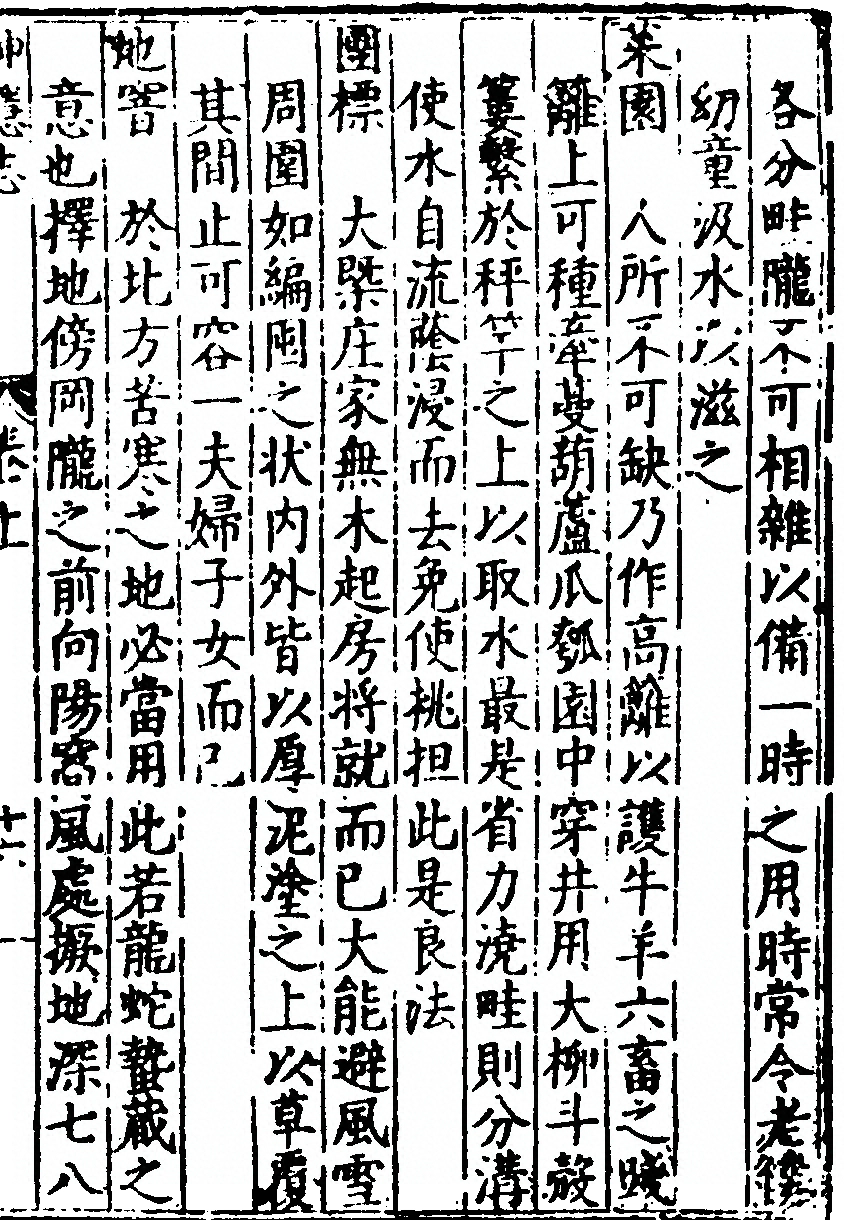 各分畦隴不可相雜以備一時之用時常令老僕
幼童汲水以滋之
菜園 人所不可缺乃作高籬以護牛羊六畜之殘
籬上可種牽蔓葫蘆瓜瓠園中穿井用大柳斗殽
簍繫於秤竿之上以取水最是省力澆畦則分溝
使水自流蔭浸而去免使桃担此是良法
團標 大槩庄家無木起房將就而已大能避風雪
周圍如編囤之状内外皆以厚泥塗之上以草覆
其間止可容一夫婦子女而已
地窨 於北方苦寒之地必當用此若龍蛇蟄藏之
意也擇地傍岡隴之前向陽窩風處掘地深七八
神隱志 卷上 十六